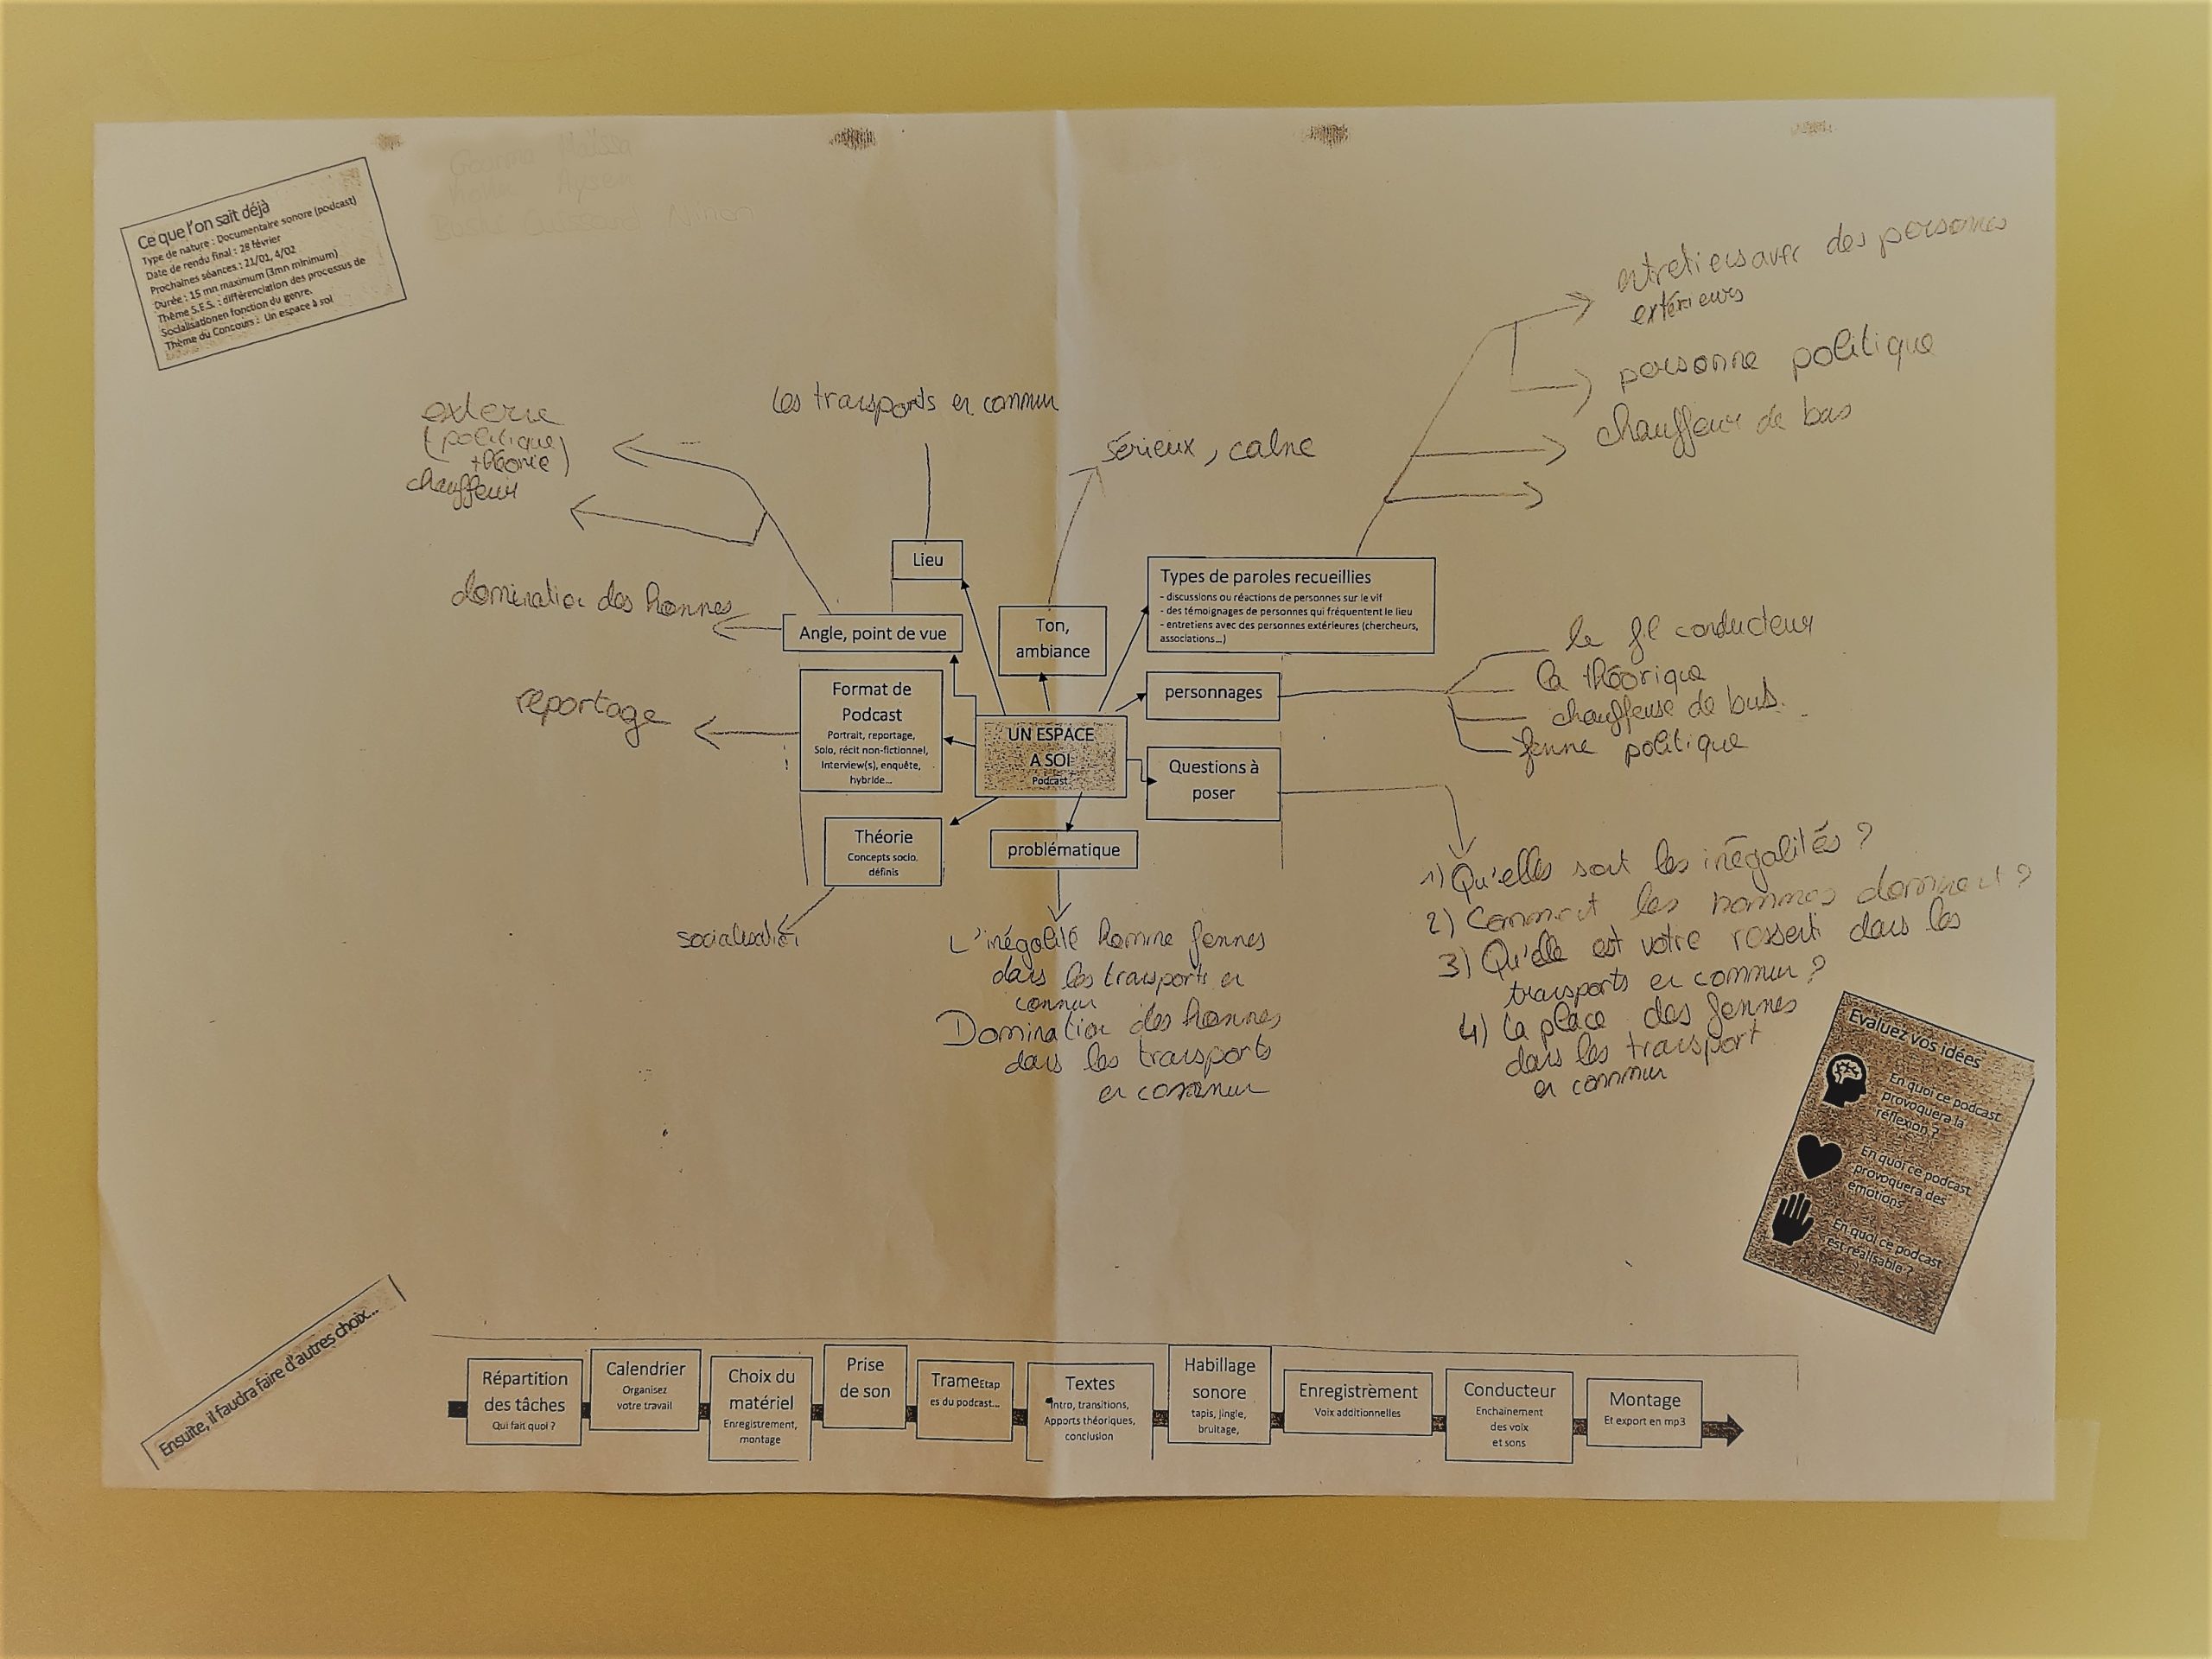 Ce que l'on sait déjà
Type de nature : Documentaire sonore (podcast)
Date de rendu final : 28 février
Prochaines séances : 21/01, 4/02
Durée : 15 mn maximum (3mn minimum)
Thème S.E.S. : différenciation des processus de
Socialisationen fonction du genre.
Thème du Concours : Un espace à soi
entretiens avec des personnes
extérieurs
personne politique
chauffeur de bus
les transports en commun
externe
(politique
+ théorie)
chauffeur
sérieux, calme
Lieu
Types de paroles recueillies
- discussions ou réactions de personnes sur le vif
- des témoignages de personnes qui fréquentent le lieu
- entretiens avec des personnes extérieures (chercheurs,
associations...)
domination des hommes
Angle, point de vue
Ton,
ambiance
le fil conducteur
la théorique
chauffeuse de bus.
femme politique
personnages
reportage
Format de
Podcast
Portrait, reportage,
Solo, récit non-fictionnel,
Interview(s), enquête,
hybride...
UN ESPACE
A SOI
Podcast
Questions à
poser
Théorie
Concepts socio.
définis
problématique
socialisation
L'inégalité homme femmes
dans les transports en
commun
Domination des hommes
dans les transports
en commun
1) Qu'elles sont les inégalités ?
2) Comment les hommes dominent ?
3) Qu'elle est votre ressenti dans les
transports en commun ?
4) La place des femmes
dans les transport
en commun
Evaluez vos idées
En quoi ce podcast
provoquera la
réflexion ?
En quoi ce podcast
provoquera des
émotions
En quoi ce podcast
est réalisable ?
Ensuite, il faudra faire d'autres choix...
Répartition
des tâches
Qui fait quoi ?
Calendrier
Organisez
votre travail
Choix du
matériel
Enregistrement,
montage
Prise
de son
TrameEtap
es du podcast...
Textes
Intro, transitions,
Apports théoriques,
conclusion
Habillage
sonore
tapis, jingle,
bruitage,
Enregistrement
Voix additionnelles
Conducteur
Enchainement
des voix
et sons
Montage
Et export en mp3